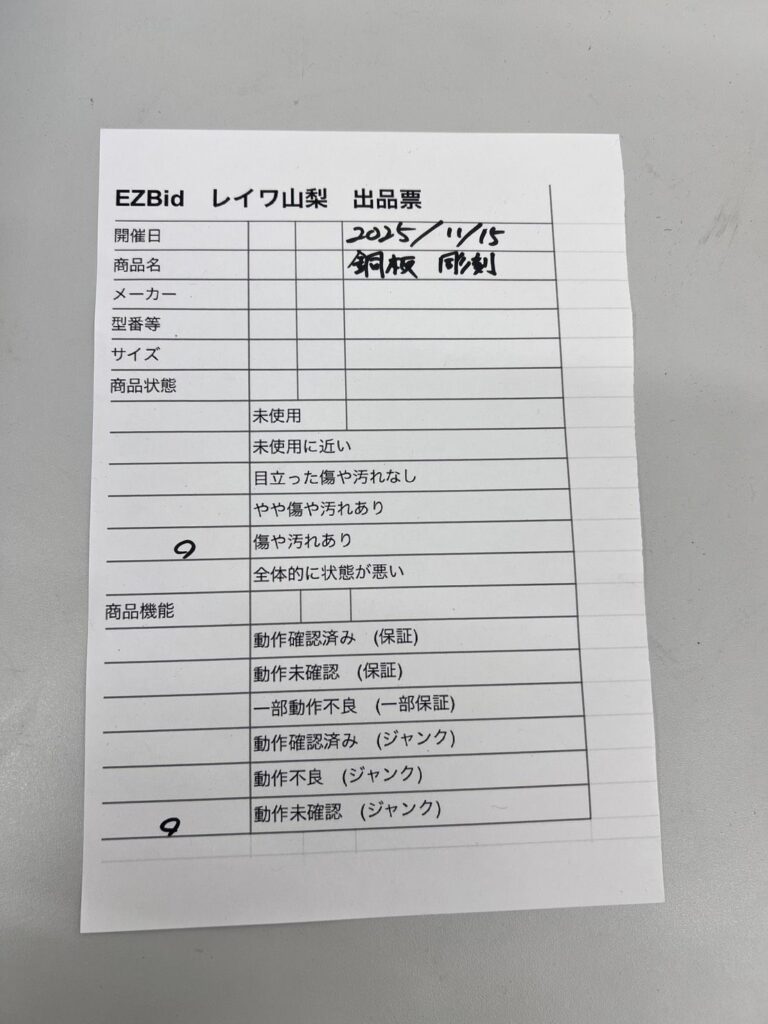 EZBid レイワ山梨 出品票
開催日 2025/11/15
商品名 銅板 彫刻
メーカー
型番等
サイズ
商品状態
未使用
未使用に近い
目立った傷や汚れなし
やや傷や汚れあり
傷や汚れあり
全体的に状態が悪い
商品機能
動作確認済み (保証)
動作未確認 (保証)
一部動作不良 (一部保証)
動作確認済み (ジャンク)
動作不良 (ジャンク)
動作未確認 (ジャンク)